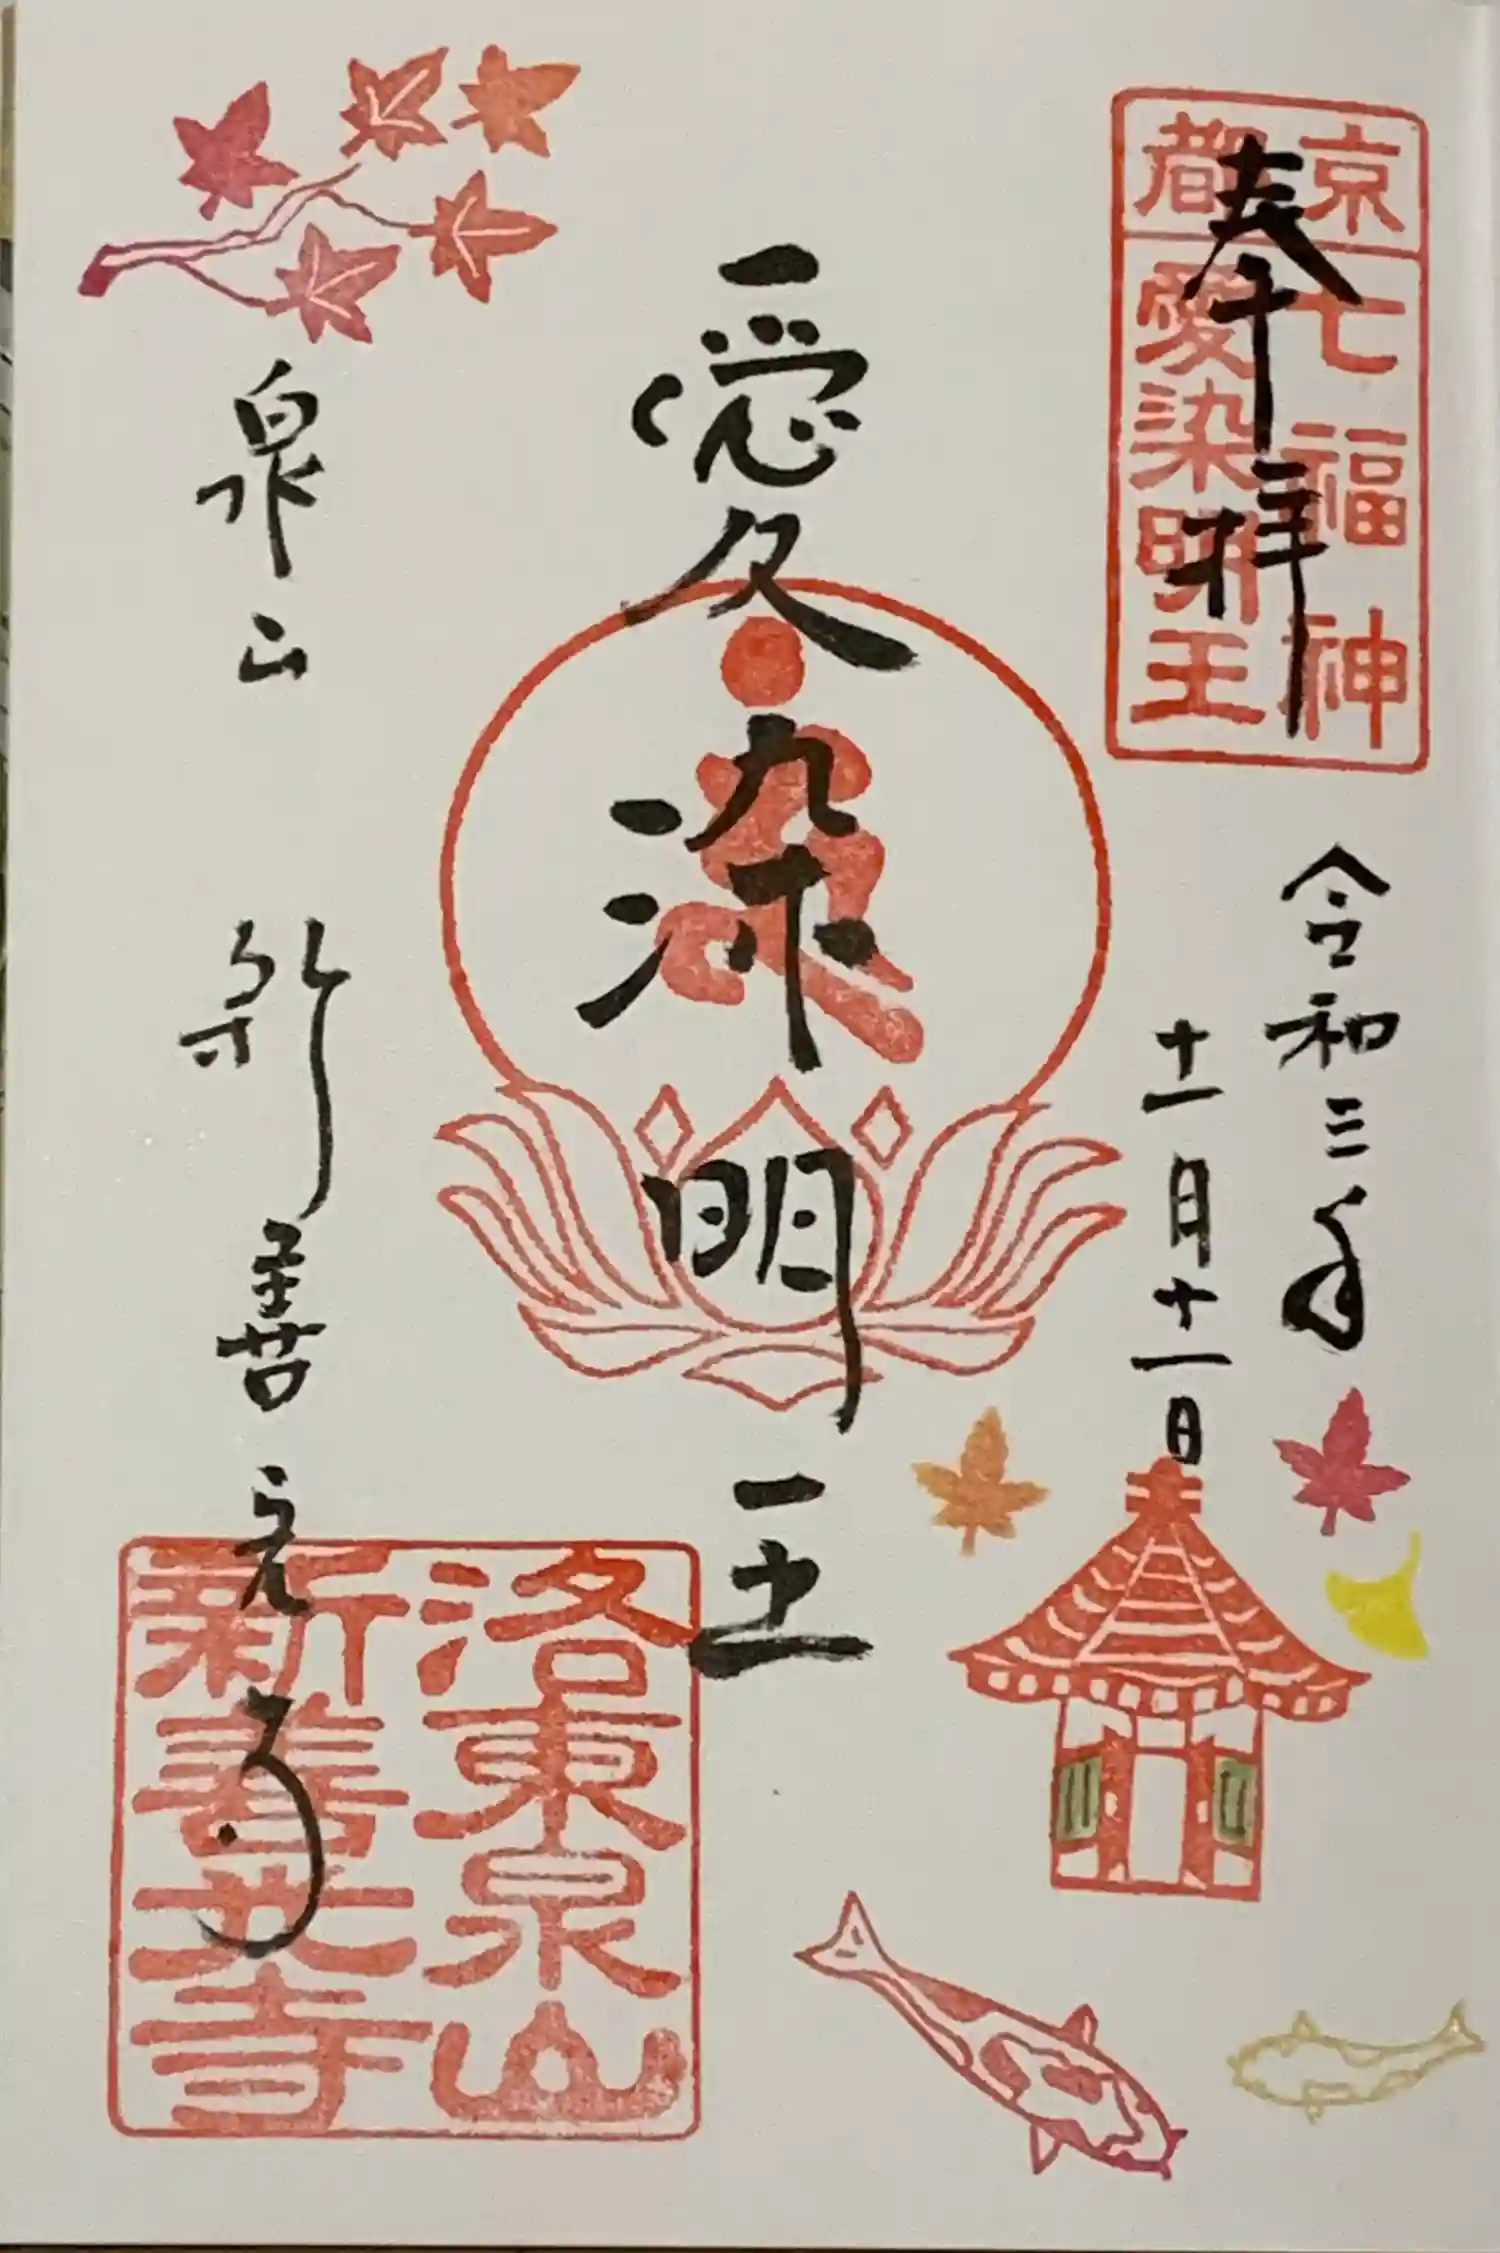 奉拝
京都
七福神
愛染明王
令和三年
十一月十一日
愛染明王
泉山
新善光寺
洛東泉山
新善光寺